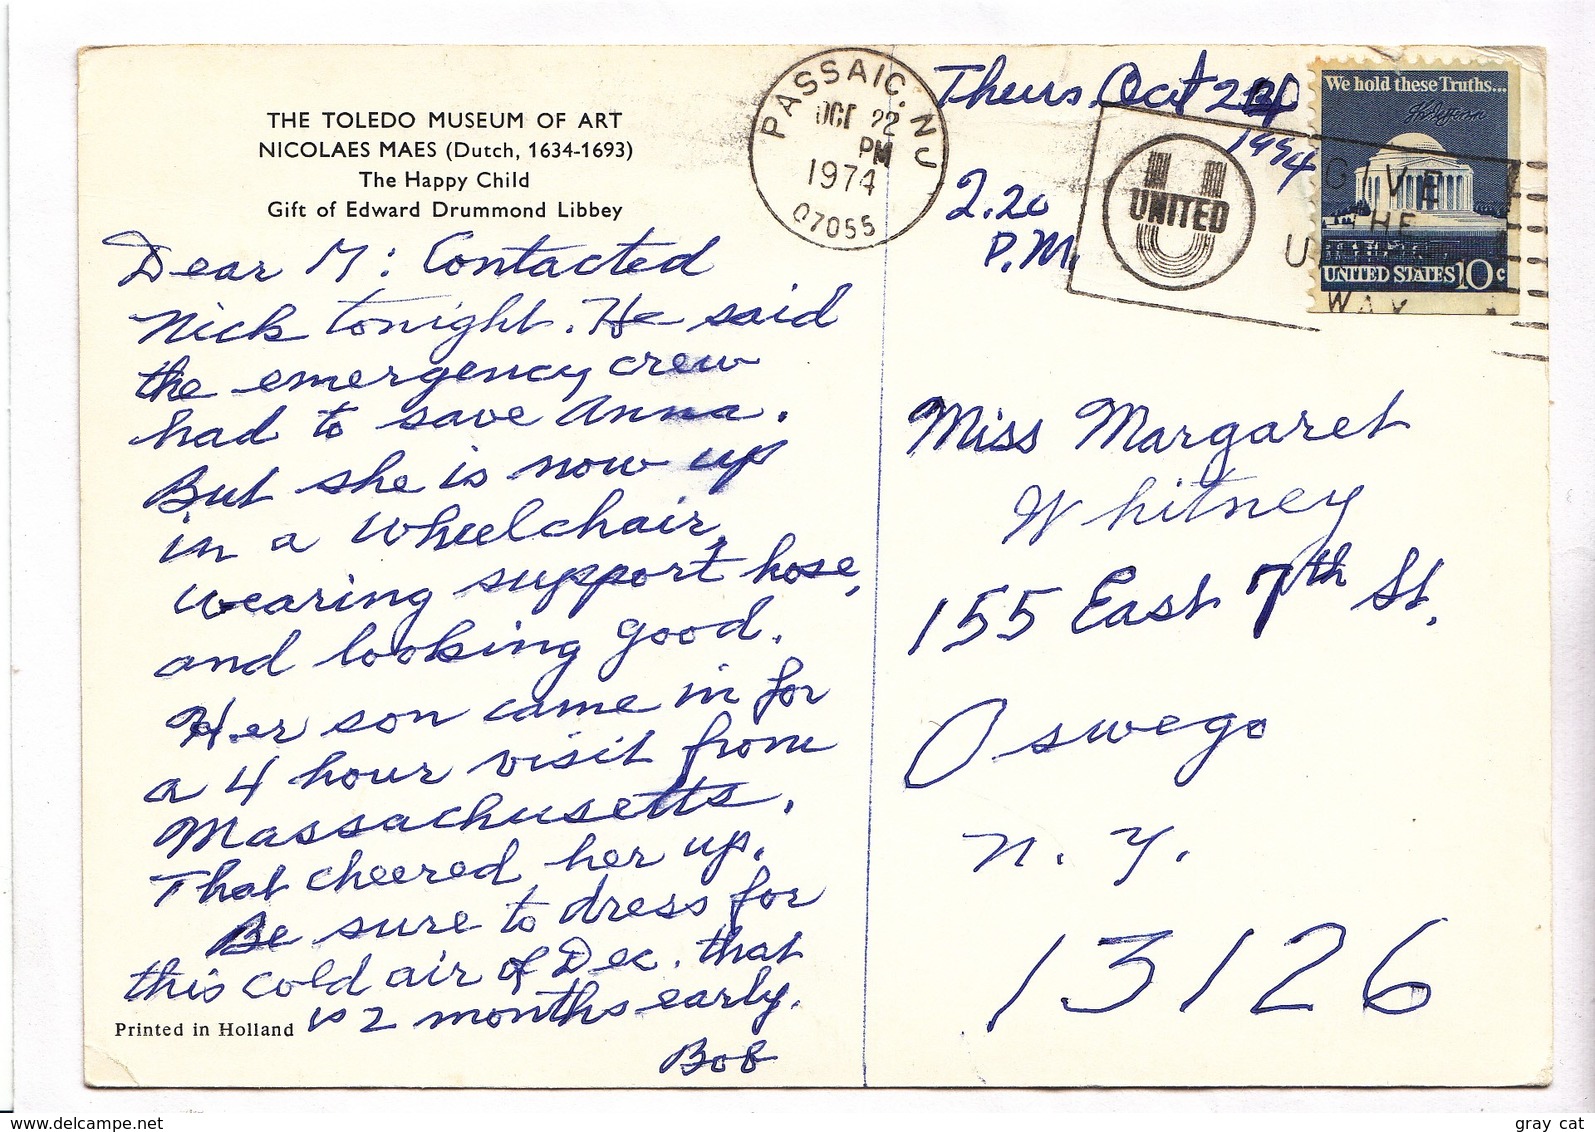 THE TOLEDO MUSEUM OF ART
NICOLAES MAES (Dutch, 1634-1693)
The Happy Child
Gift of Edward Drummond Libbey
Dear M: Contacted
Nick tonight. He said
the emergency crew
had to save Anna.
But she is now up
in a wheelchair,
wearing support hose,
and looking good.
Her son came in for
a 4 hour visit from
Massachusetts.
That cheered her up.
Be sure to dress for
this cold air of Dec. that
is 2 months early.
Bob
Printed in Holland
PASSAIC, NJ
OCT 22
PM
1974
07055
Thurs. Oct
1974
2.20
P.M.
UNITED
GIVE
THE
U
WAY
We hold these Truths...
UNITED STATES 10c
Miss Margaret
Whitney
155 East 7th St.
Oswego
N.Y.
13126
www.delcampe.net
gray cat